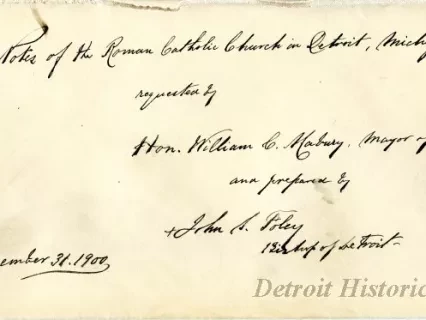 Notes of the Roman Catholic Church in Detroit, Mich
requested by
Hon. William C. Mabury, Mayor of
and prepared by
+ John S. Foley
Bishop of Detroit
ember 31. 1900
Detroit Historic